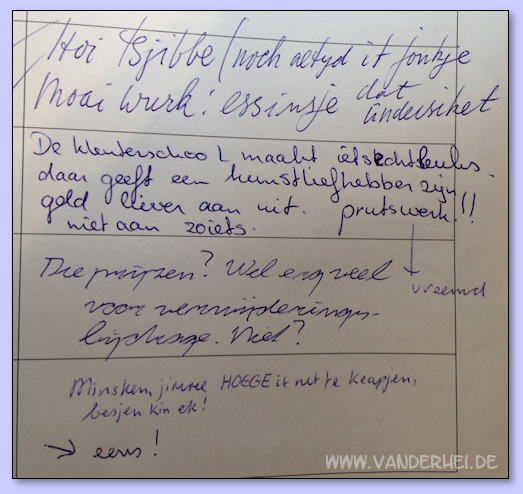 Hoi Tsjibbe (noch altyd it jonkje
Moai wurk: essinsje dat
ûndersiket
De kleuterschool maakt iets echt leuks.
daar geeft een kunstliefhebber zijn
geld liever aan uit. prutswerk!!
niet aan zoiets.
vreemd
Die prijzen? Wel erg veel
voor verwijderings-
bijdrage. Niet?
Minsken, jimme HOEGE it net te keapjen,
besjen kin ek!
→ eens!
WWW.VANDERHEI.DE